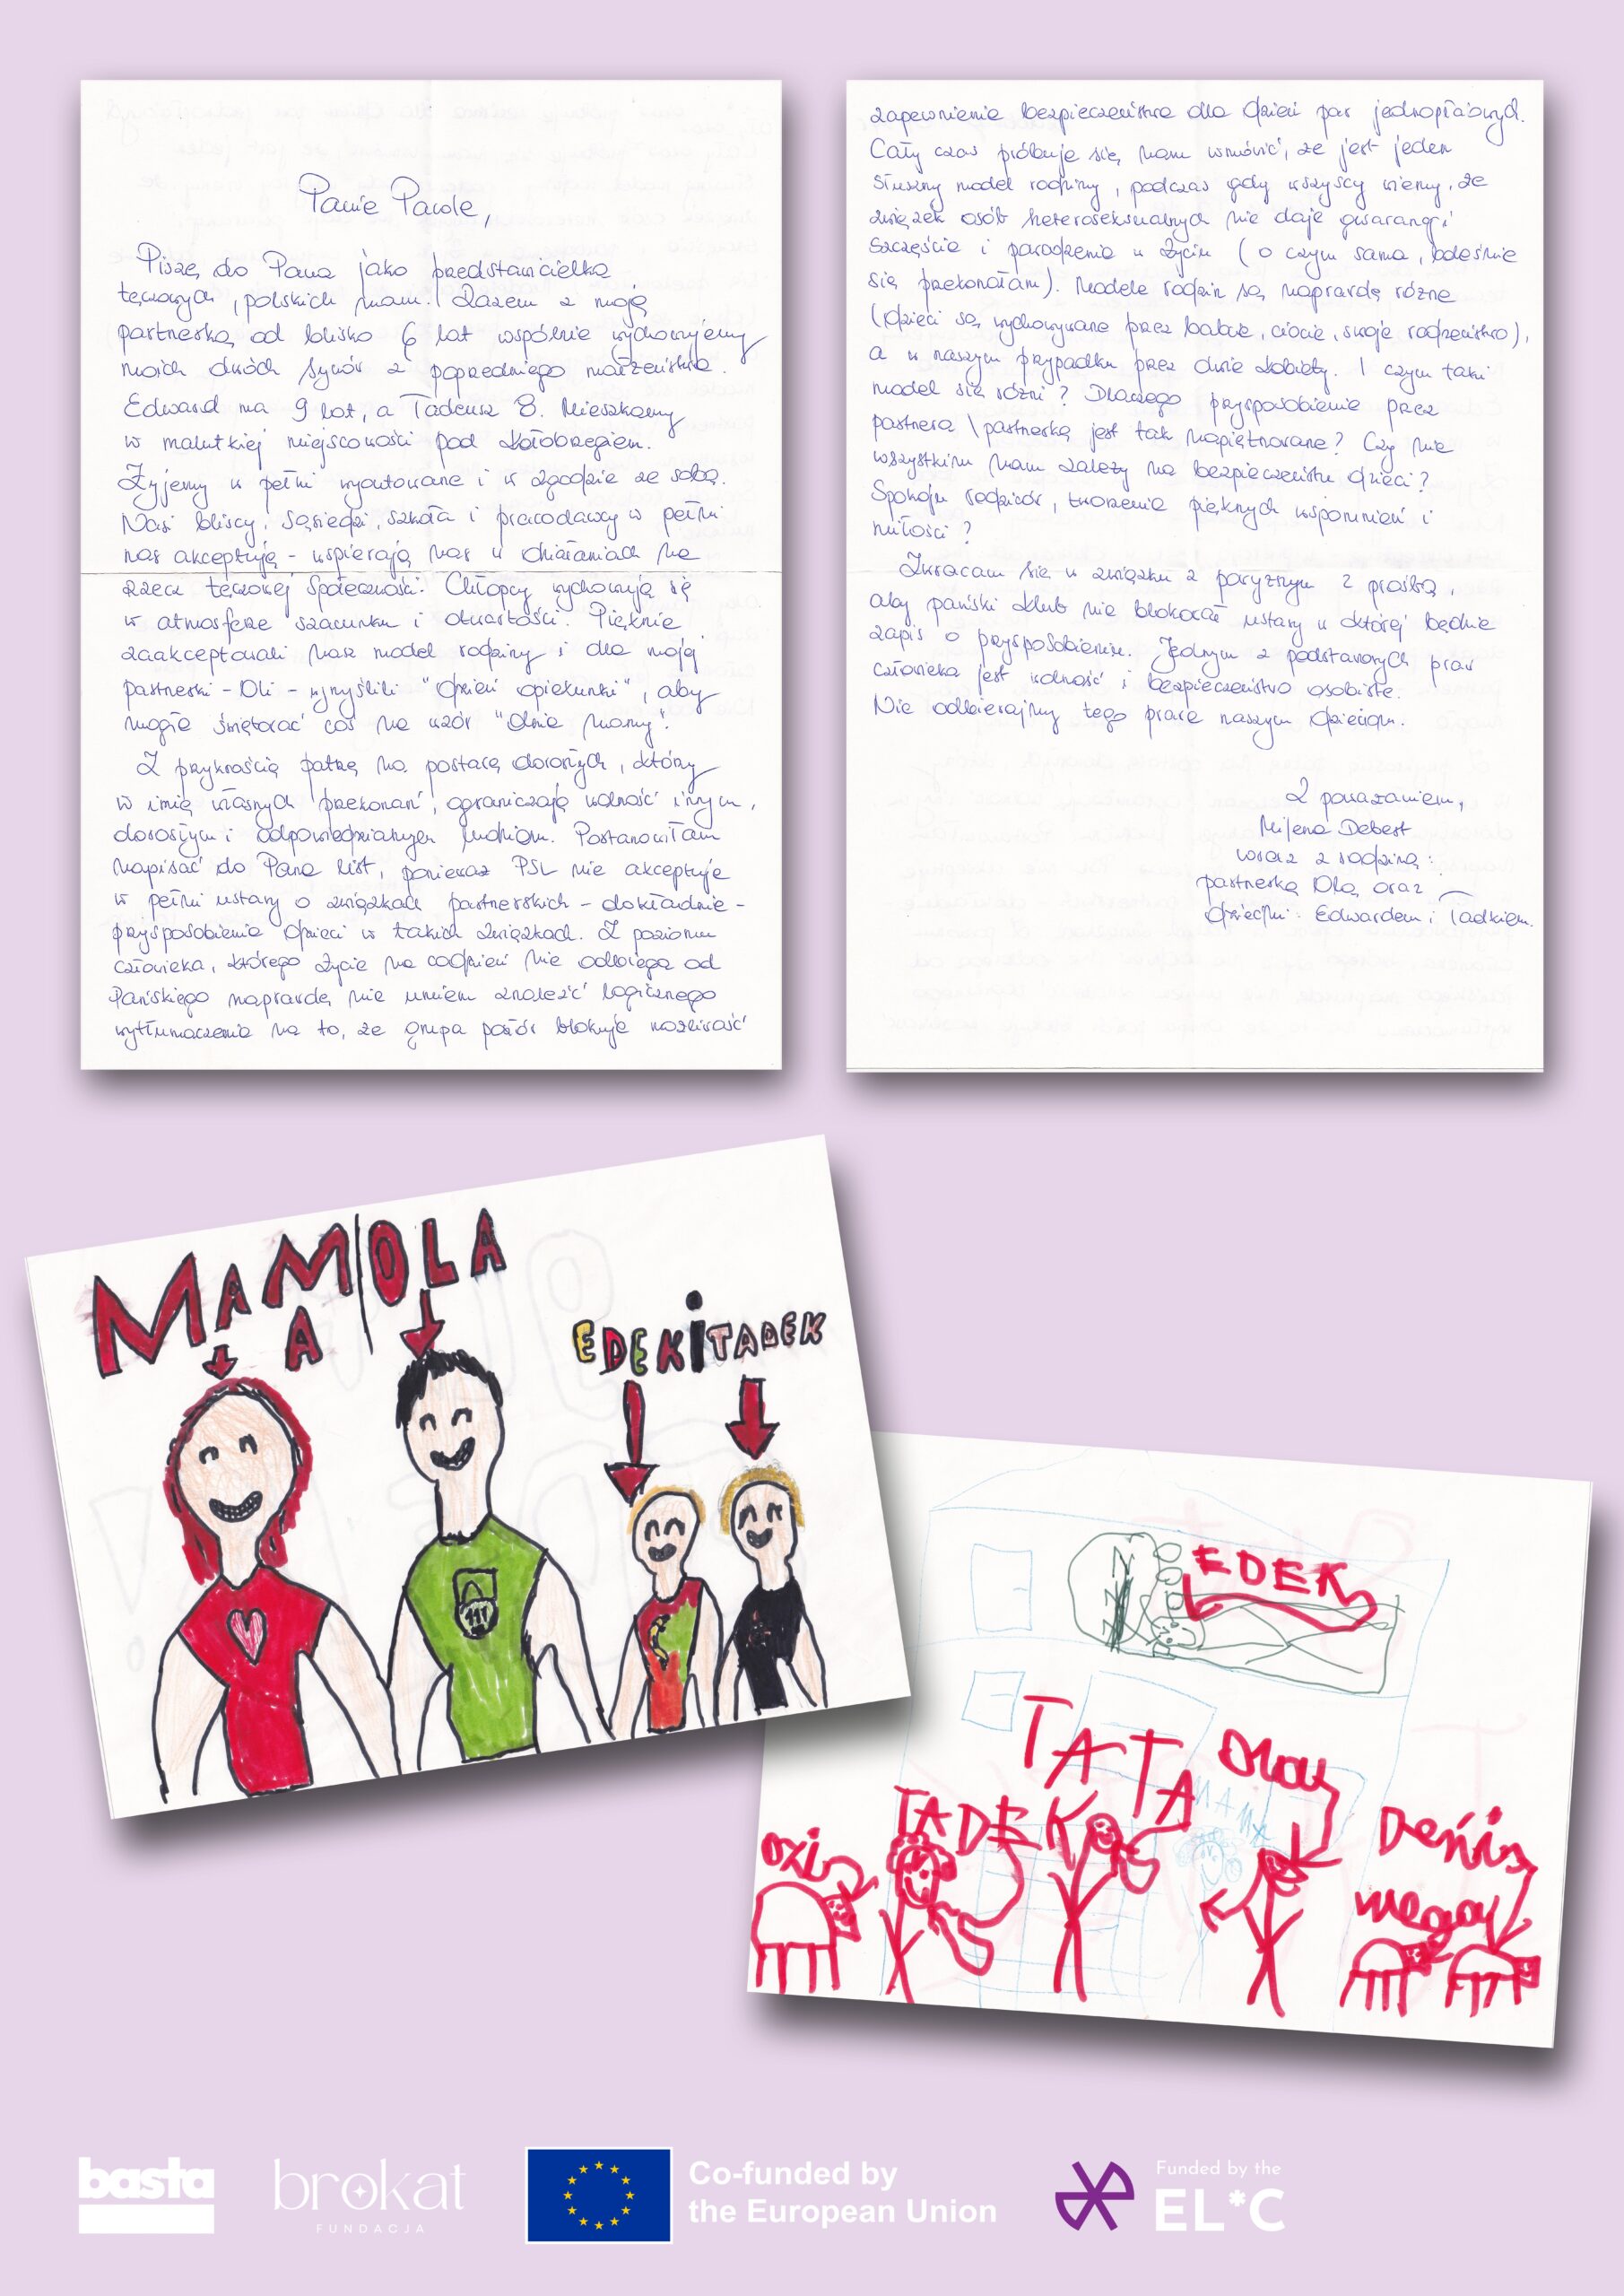 Panie Pawle,
Piszę do Pana jako przedstawicielka
tęczowych, polskich mam. Razem z moją
partnerką od blisko 6 lat wspólnie wychowujemy
moich dwóch synów z poprzedniego małżeństwa.
Edward ma 9 lat, a Tadeusz 8. Mieszkamy
w malutkiej miejscowości pod Kołobrzegiem.
Żyjemy w pełni wyoutowane i w zgodzie ze sobą.
Nasi bliscy, sąsiedzi, szkoła i pracodawcy w pełni
nas akceptują - wspierają nas w działaniach na
rzecz tęczowej społeczności. Chłopcy wychowują się
w atmosferze szacunku i otwartości. Pięknie
zaakceptowali nasz model rodziny i dla mojej
partnerki - Oli - wymyślili "dzień opiekunki", aby
mogła świętować coś na wzór "dnia mamy".
Z przykrością patrzę na postawę dorosłych, którzy
w imię własnych przekonań, ograniczają wolność innym,
dorosłym i odpowiedzialnym ludziom. Postanowiłam
napisać do Pana list, ponieważ PSL nie akceptuje
w pełni ustawy o związkach partnerskich - dokładnie -
przysposobienia dzieci w takich związkach. Z poziomu
człowieka, którego życie na codzień nie odbiega od
Pańskiego naprawdę nie umiem znaleźć logicznego
wytłumaczenia na to, że grupa posłów blokuje możliwość
zapewnienia bezpieczeństwa dla dzieci par jednopłciowych.
Cały czas próbuje się nam wmówić, że jest jeden
słuszny model rodziny, podczas gdy wszyscy wiemy, że
związek osób heteroseksualnych nie daje gwarancji
szczęścia i powodzenia w życiu (o czym sama, boleśnie
się przekonałam). Modele rodzin są naprawdę różne
(dzieci są wychowywane przez babcie, ciocie, swoje rodzeństwo),
a w naszym przypadku przez dwie kobiety. I czym taki
model się różni? Dlaczego przysposobienie przez
partnera \ partnerkę jest tak napiętnowane? Czy nie
wszystkim nam zależy na bezpieczeństwie dzieci?
Spokoju rodziców, tworzenia pięknych wspomnień i
miłości?
Zwracam się w związku z powyższym z prośbą,
aby pański klub nie blokował ustawy w której będzie
zapis o przysposobieniu. Jednym z podstawowych praw
człowieka jest wolność i bezpieczeństwo osobiste.
Nie odbierajmy tego prawa naszym dzieciom.
Z poważaniem,
Milena Debest
wraz z rodziną:
partnerką Olą oraz
dziećmi: Edwardem i Tadkiem.
MAMA | OLA
EDEK i TADEK
ZZZ
EDEK
TATA
TADEK
MAMA
oxi
Denis
megan
basta
brokat
FUNDACJA
Co-funded by
the European Union
Funded by the
EL*C